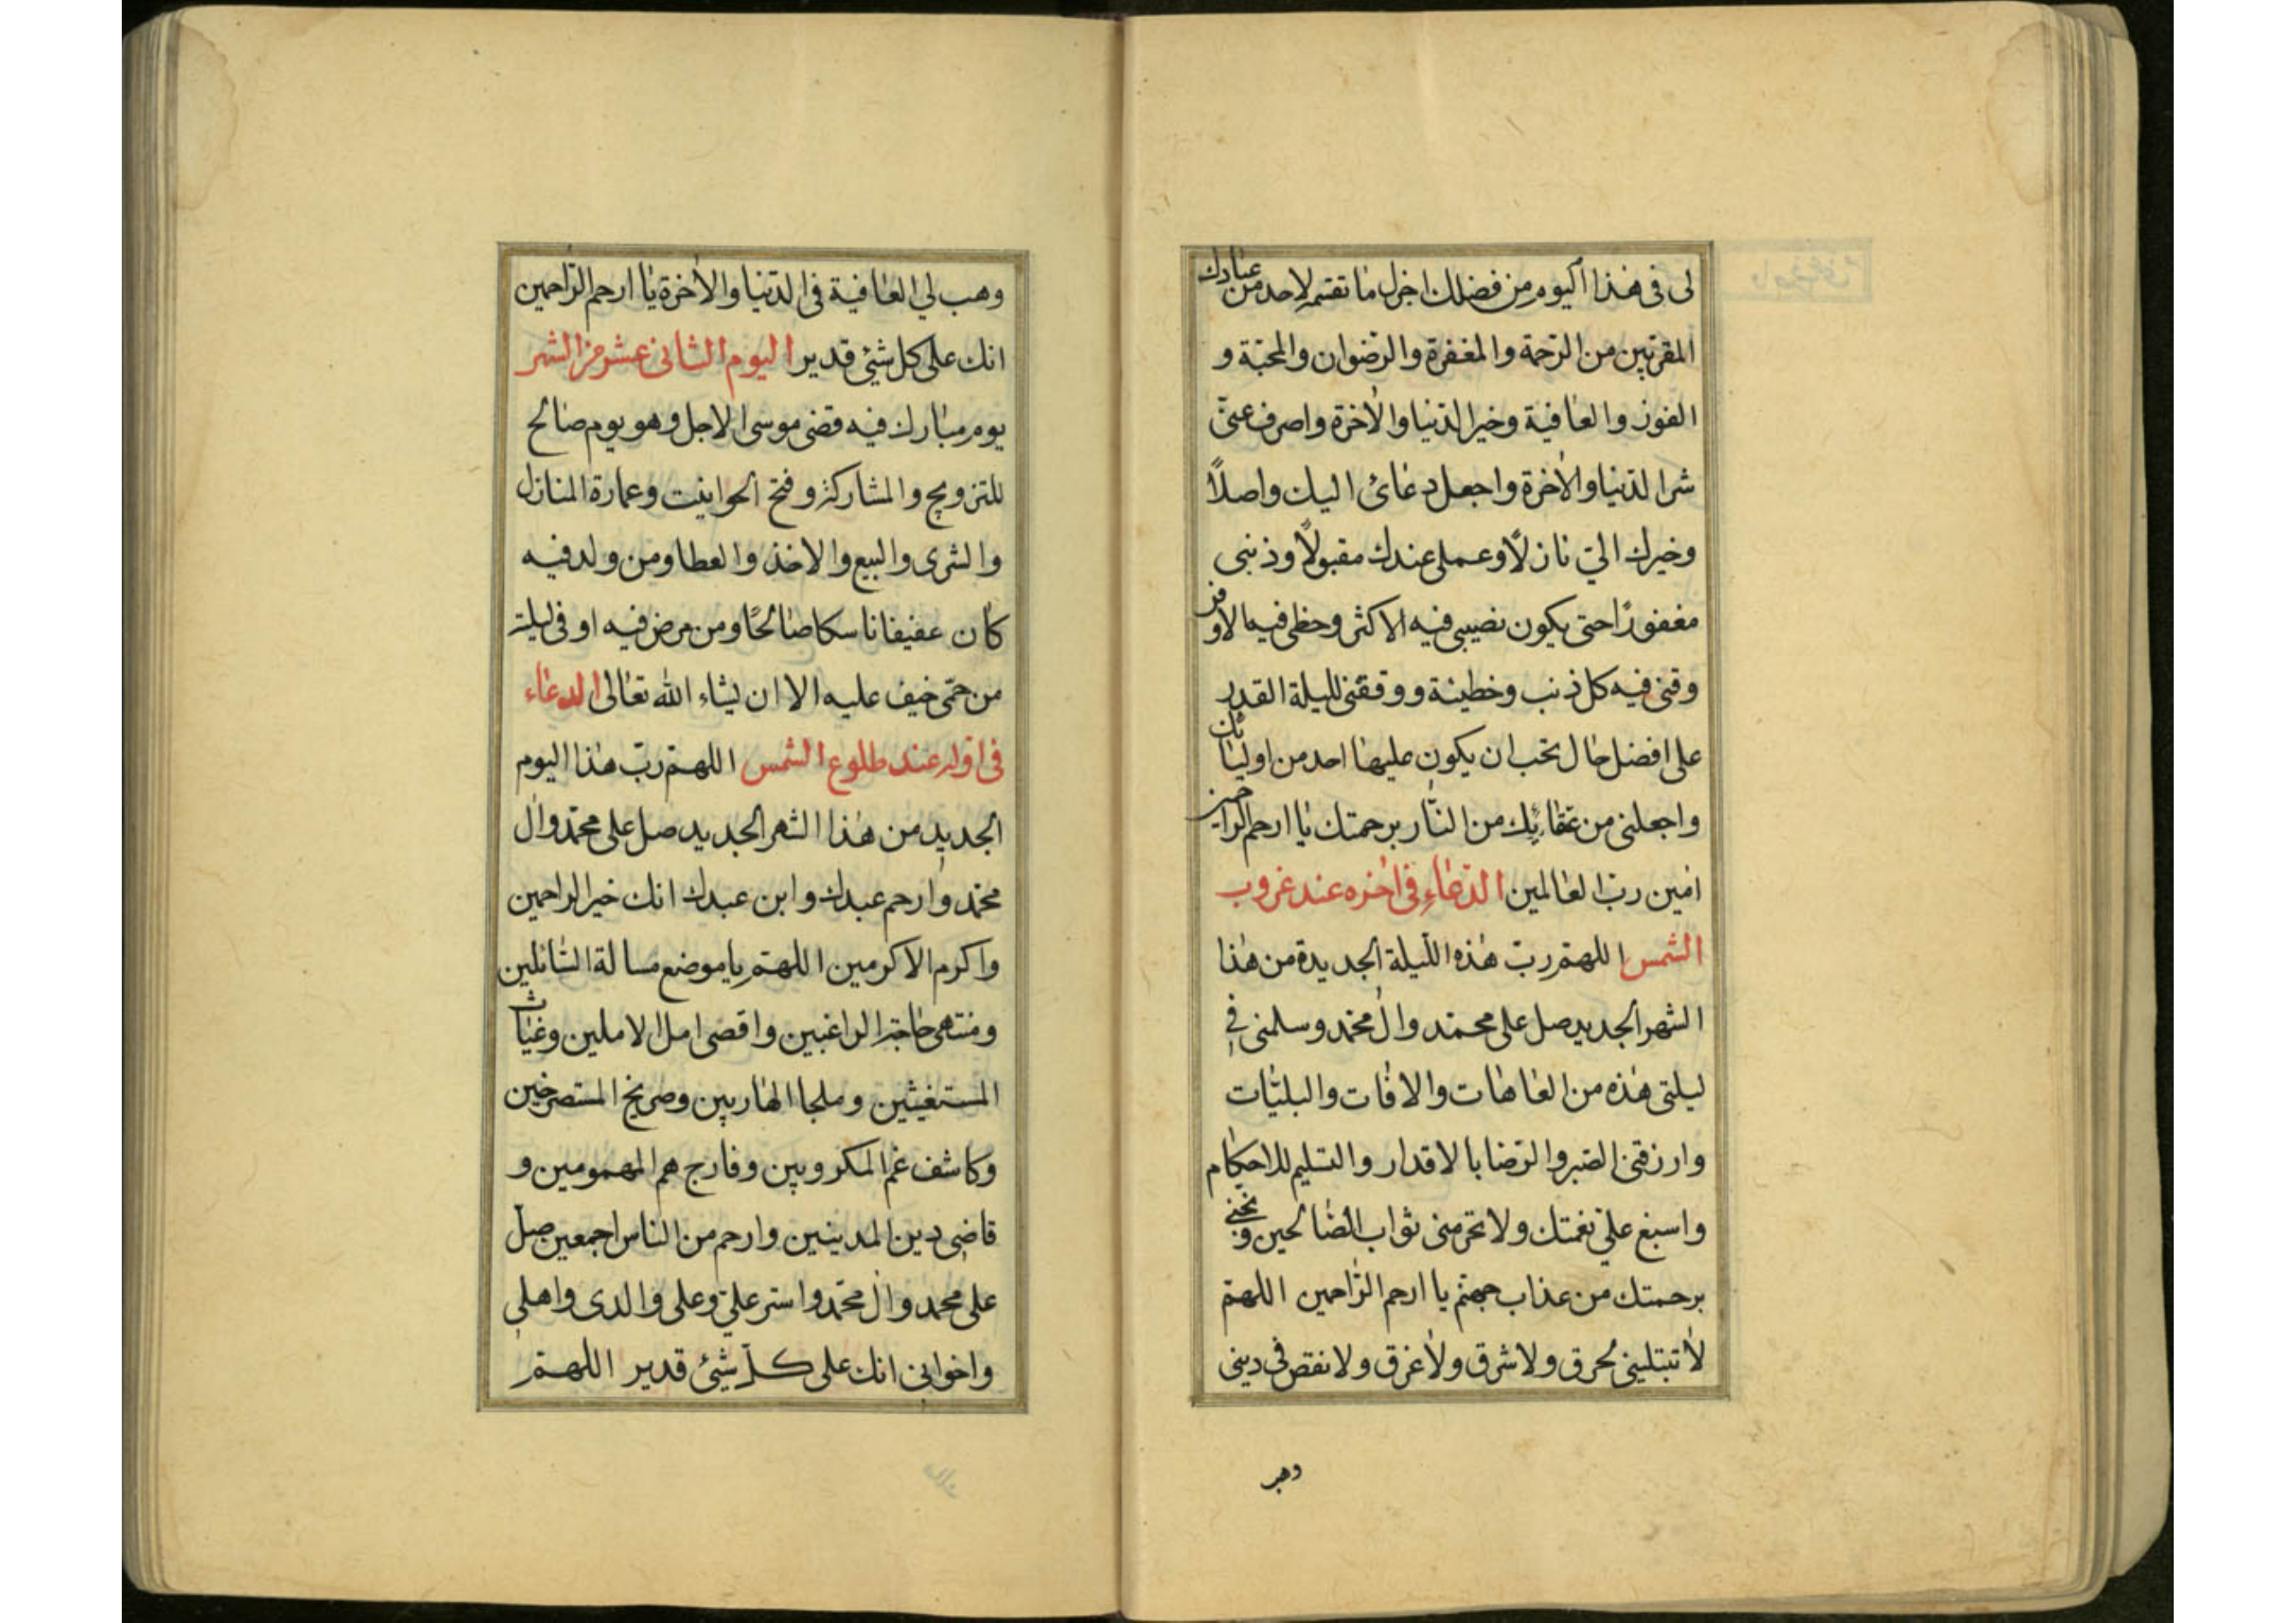 لى فى هذا اليوم من فضلك اجزل ما تقسم لاحد من عبادك
المقربين من الرحمة والمغفرة والرضوان والمحبة و
الفوز والعافية وخير الدنيا والاخرة واصرف عنى
شر الدنيا والاخرة واجعل دعائى اليك واصلاً
وخيرك الىّ نازلاً وعملى عندك مقبولاً وذنبى
مغفورًا حتى يكون نصيبى فيه الاكثر وحظى فيه الاوفر
وقنى فيه كل ذنب وخطيئة ووفقنى لليلة القدر
على افضل حال تحب ان يكون عليها احد من اوليائك
واجعلنى من عتقائك من النار برحمتك يا ارحم الراحمين
امين ربّ العالمين الدعاء فى اخره عند غروب
الشمس اللهم ربّ هذه الليلة الجديدة من هذا
الشهر الجديد صل على محمد وال محمد وسلمنى فى
ليلتى هذه من العاهات والافات والبليّات
وارزقنى الصبر والرضا بالاقدار والتسليم للاحكام
واسبغ علىّ نعمتك ولا تحرمنى ثواب الصّالحين ونجنى
برحمتك من عذاب جهنم يا ارحم الرّاحمين اللهمّ
لا تبتلينى بحرق ولا شرق ولا غرق ولا نقص فى دينى
وهب
وهب لي العافية فى الدنيا والاخرة يا ارحم الراحمين
انك على كل شيئ قدير اليوم الثانى عشر من الشهر
يوم مبارك فيه قضى موسى الاجل وهو يوم صالح
للتزويج والمشاركة وفتح الحوانيت وعمارة المنازل
والشرى والبيع والاخذ والعطا ومن ولد فيه
كان عفيفا ناسكا صالحًا ومن مرض فيه او فى ليلته
من حمّى خيف عليه الا ان يشاء الله تعالى الدعاء
فى اوله عند طلوع الشمس اللهم ربّ هذا اليوم
الجديد من هذا الشهر الجديد صل على محمد وال
محمد وارحم عبدك وابن عبدك انك خير الراحمين
واكرم الاكرمين اللهم يا موضع مسالة السّائلين
ومنتهى حاجة الراغبين واقصى امل الاملين وغياث
المستغيثين وملجا الهاربين وصريخ المستصرخين
وكاشف غم المكروبين وفارج هم المهمومين و
قاضى دين المدينين وارحم من الناس اجمعين صل
على محمد وال محمد واستر علىّ وعلى والدى واهلى
واخوانى انك على كلّ شيئ قدير اللهمّ